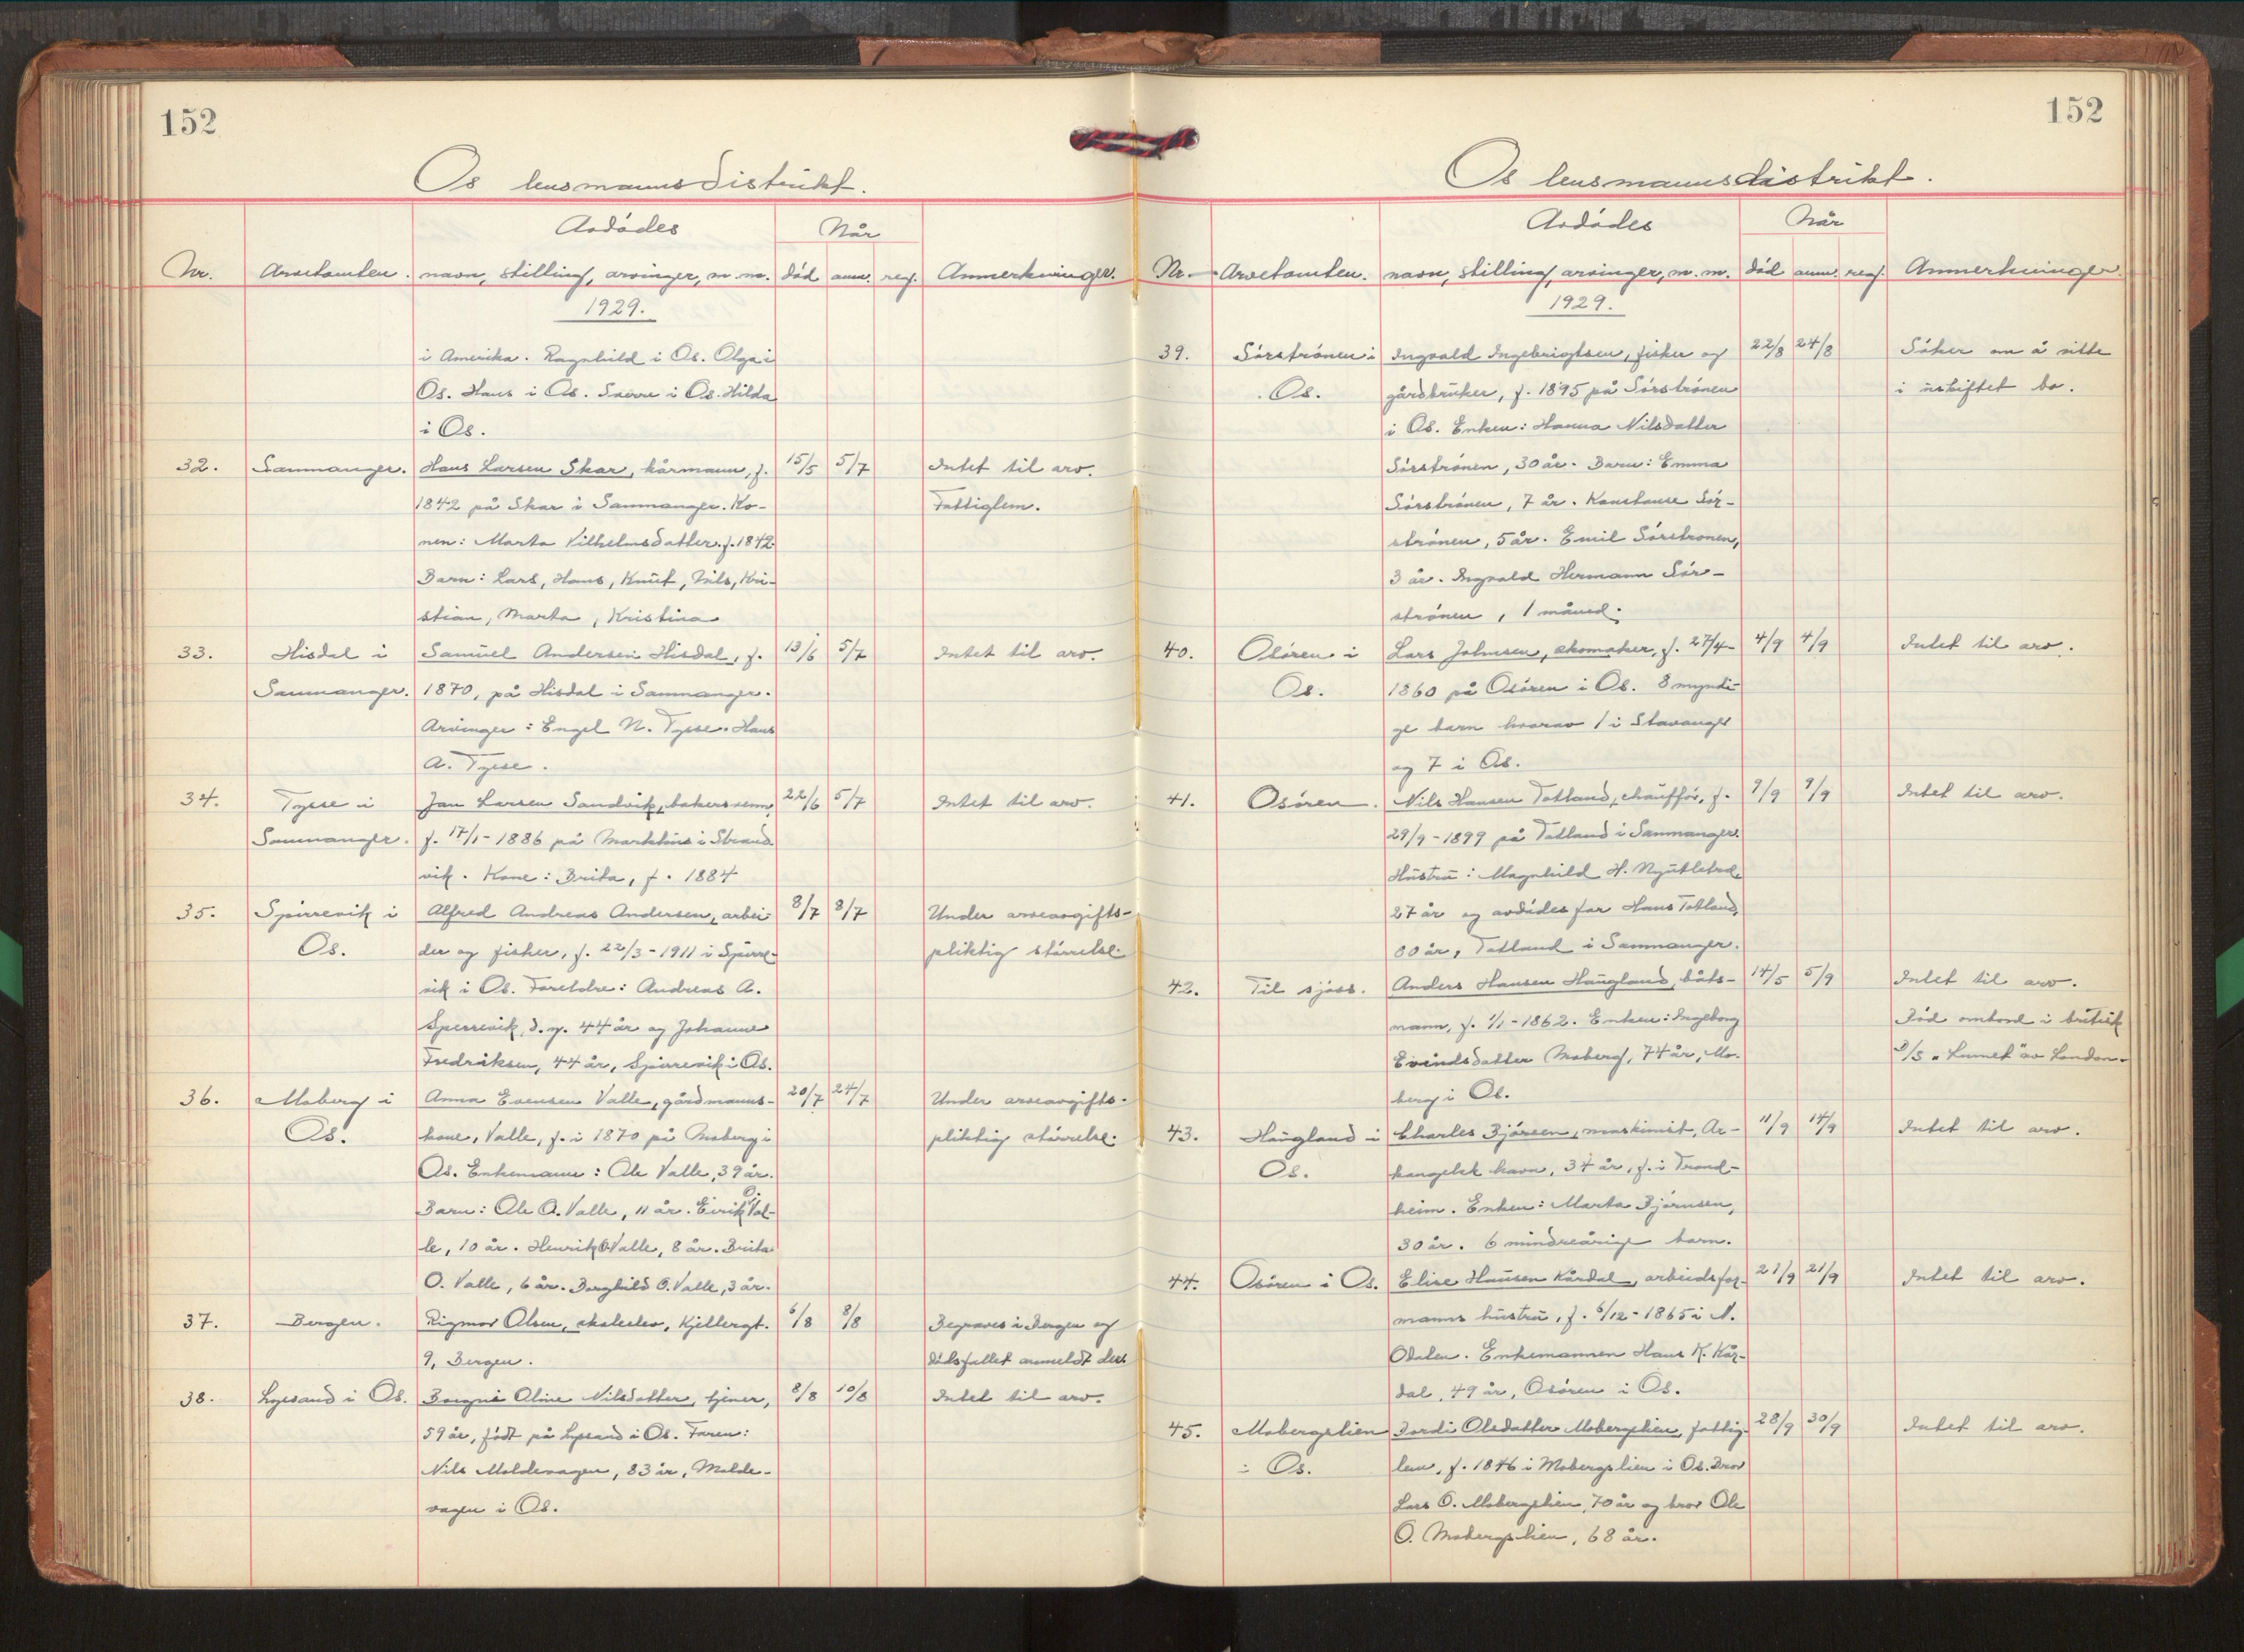 152
Os lensmannsdistrikt.
Avdødes
Når
Nr. Arvetomten. navn, stilling, arvinger, m.m. død anm. reg. Anmerkninger.
1929.
i Amerika. Ragnhild i Os. Olga i
Os. Hans i Os. Sverre i Os. Hilda
i Os.
32. Samnanger. Hans Larsen Skar, kårmann, f. 15/5 5/7 Intet til arv.
1842 på Skar i Samnanger. Ko- Fattiglem.
nen: Marta Vilhelmsdatter f. 1842.
Barn: Lars, Hans, Knut, Nils, Kri-
stian, Marta, Kristina
33. Hisdal i Samuel Andersen Hisdal, f. 13/6 5/7 Intet til arv.
Samnanger. 1870, på Hisdal i Samnanger.
Arvinger: Engel N. Tysse. Hans
A. Tysse.
34. Tysse i Jan Larsen Sandvik, bakersvenn, 22/6 5/7 Intet til arv.
Samnanger. f. 17/1-1886 på i Strand-
vik. Kone: Brita, f. 1884
35. Spørrevik i Alfred Andreas Andersen, arbei- 8/7 8/7 Under arveavgifts-
Os. der og fisker, f. 22/3-1911 i Spørre- pliktig størrelse.
vik i Os. Foreldre: Andreas A.
Sperrevik, d.y. 44 år og Johanne
Fredriksen, 44 år, Spørrevik i Os.
36. Moberg i Anna Evensen Valle, gårdmanns- 20/7 24/7 Under arveavgifts-
Os. kone, Valle, f. i 1870 på Moberg i pliktig størrelse.
Os. Enkemann: Ole Valle, 39 år.
Barn: Ole O. Valle, 11 år. Eirik O. Val-
le, 10 år. Henrik O. Valle, 8 år. Brita
O. Valle, 6 år. Borghild O. Valle, 3 år.
37. Bergen. Rigmor Olsen, skoleelev, Kjellergt. 6/8 8/8 Begraves i Bergen og
9, Bergen. dødsfallet anmeldt der.
38. Lysand i Os. Borgni Oline Nilsdatter, tjener, 8/8 10/8 Intet til arv.
59 år, født på Lysand i Os. Faren:
Nils Moldevagen, 83 år, Molde-
vagen i Os.
152
Os lensmannsdistrikt.
Avdødes
Når
Nr. Arvetomten. navn, stilling, arvinger, m.m. død anm. reg. Anmerkninger.
1929.
39. Sørstrønen i Ingvald Ingebrigtsen, fisker og 22/8 24/8 Søker om å sitte
Os. gårdbruker, f. 1895 på Sørstrønen i uskiftet bo.
i Os. Enken: Hanna Nilsdatter
Sørstrønen, 30 år. Barn: Emma
Sørstrønen, 7 år. Konstanse Sør-
strønen, 5 år. Emil Sørstronen,
3 år. Ingvald Hermann Sør-
strønen, 1 måned.
40. Osøren i Lars Johnsen, skomaker, f. 27/4- 4/9 4/9 Intet til arv.
Os. 1860 på Osøren i Os. 8 myndi-
ge barn hvorav 1 i Stavanger
og 7 i Os.
41. Osøren. Nils Hansen Totland, chauffør, f. 9/9 9/9 Intet til arv.
29/9-1899 på Totland i Samnanger.
Hustru: Magnhild H.
27 år og avdødes far Hans Totland,
80 år, Totland i Samnanger.
42. Til sjøss. Anders Hansen Haugland, båts- 14/5 5/9 Intet til arv.
mann, f. 1/1-1862. Enken: Ingeborg Død ombord i britisk
Eivindsdatter Moberg, 74 år, Mo- D/S av London.
berg i Os.
43. Haugland i Charles Bjørsen, maskinist, Ar- 11/9 14/9 Intet til arv.
Os. kangelsk havn, 34 år, f. i Trond-
heim. Enken: Marta Bjørnsen,
30 år. 6 mindreårige barn.
44. Osøren i Os. Elise Hansen Kårdal, arbeidsfor- 21/9 21/9 Intet til arv.
manns hustru, f. 6/12-1865 i N.
Odalen. Enkemannen Hans K. Kår-
dal, 49 år, Osøren i Os.
45. Mobergslien Jordi Olsdatter Mobergslien, fattig- 28/9 30/9 Intet til arv.
i Os. lem, f. 1846 i Mobergslien i Os. Bror
Lars O. Mobergslien, 70 år og bror Ole
O. Mobergslien, 68 år.